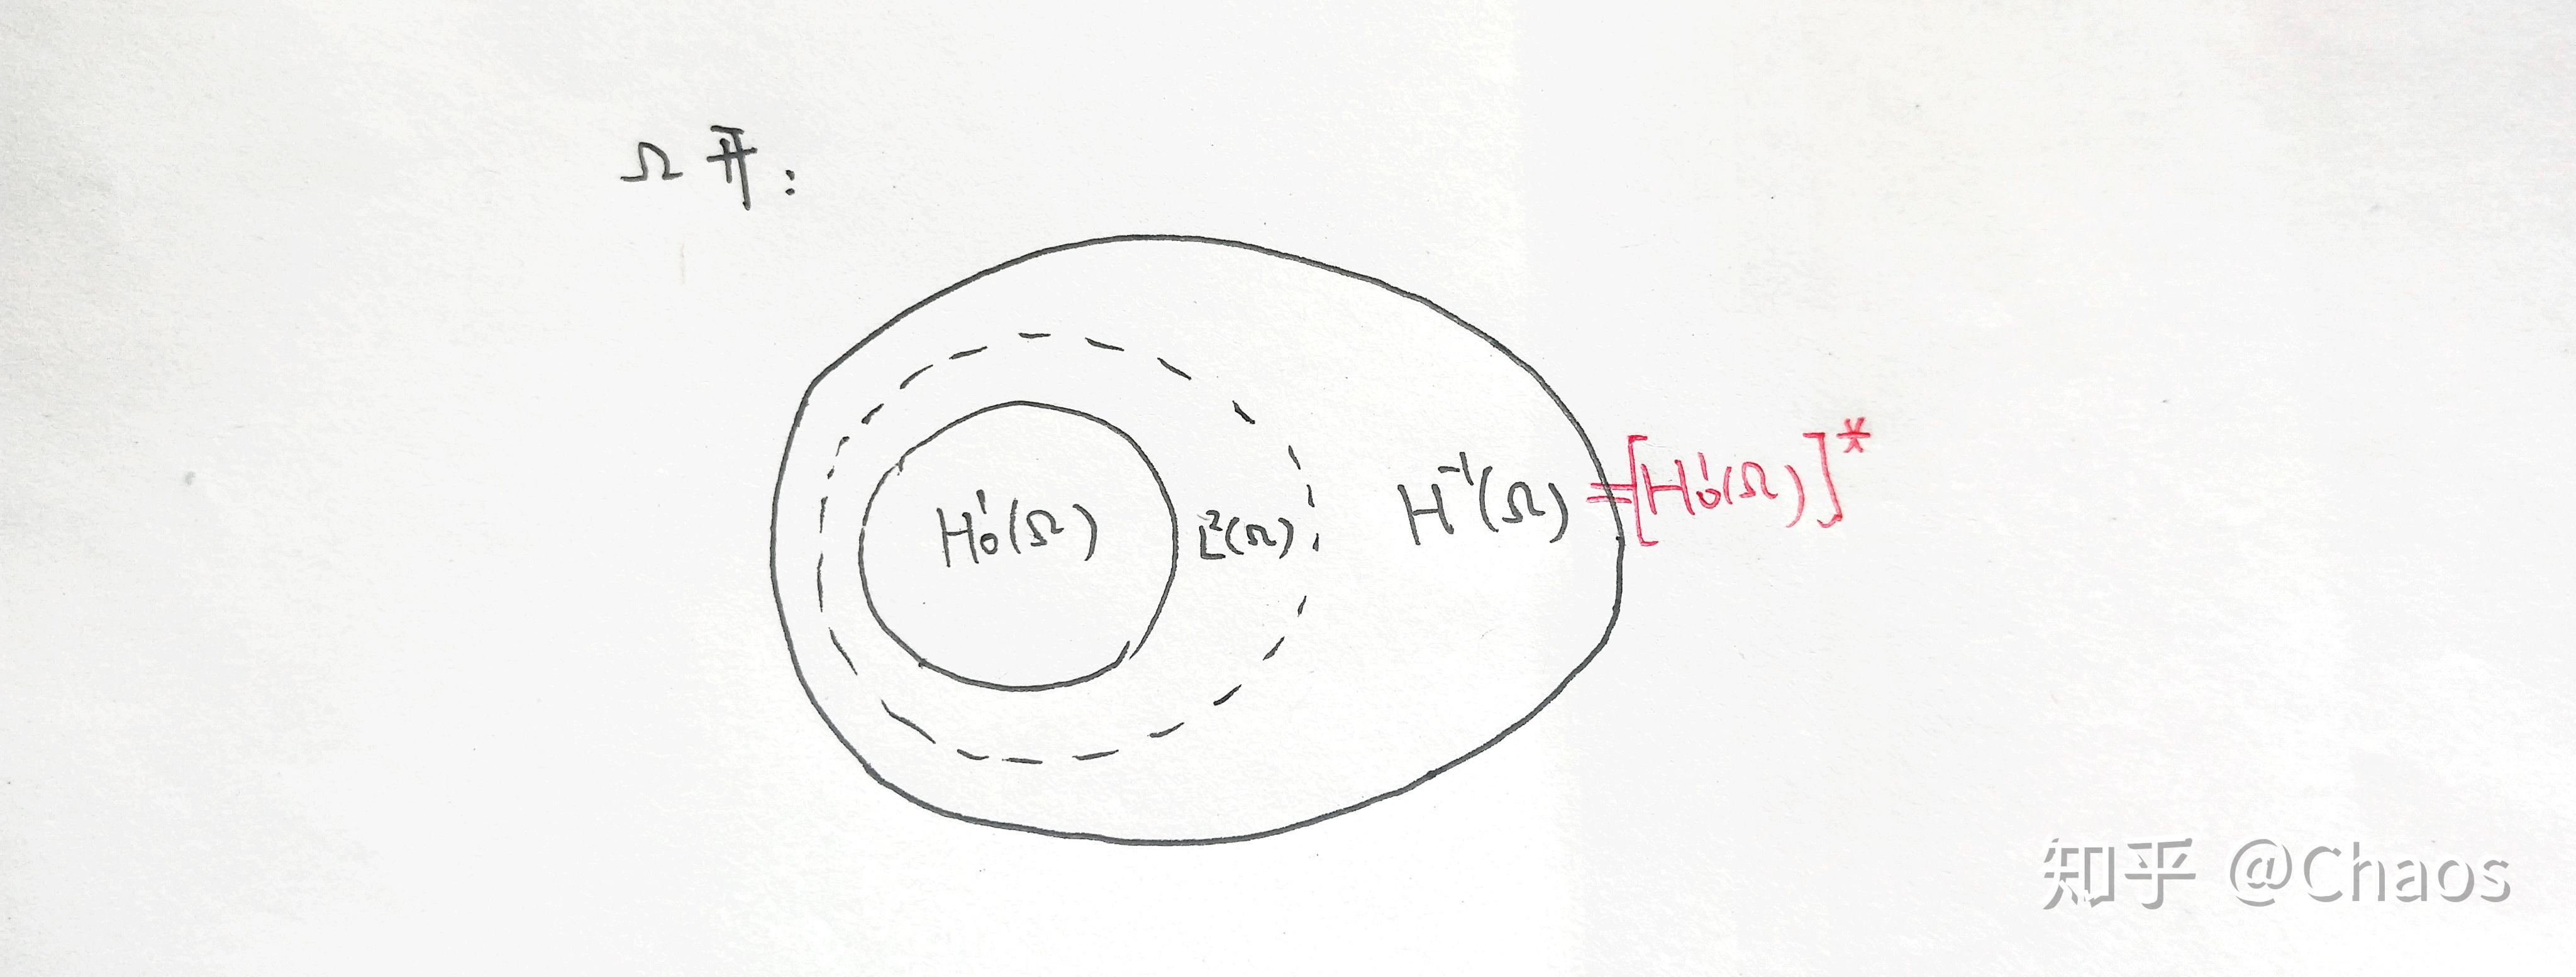 Ω 开:
H₀¹(Ω) L²(Ω) H⁻¹(Ω) =[H₀¹(Ω)]*
知乎 @Chaos